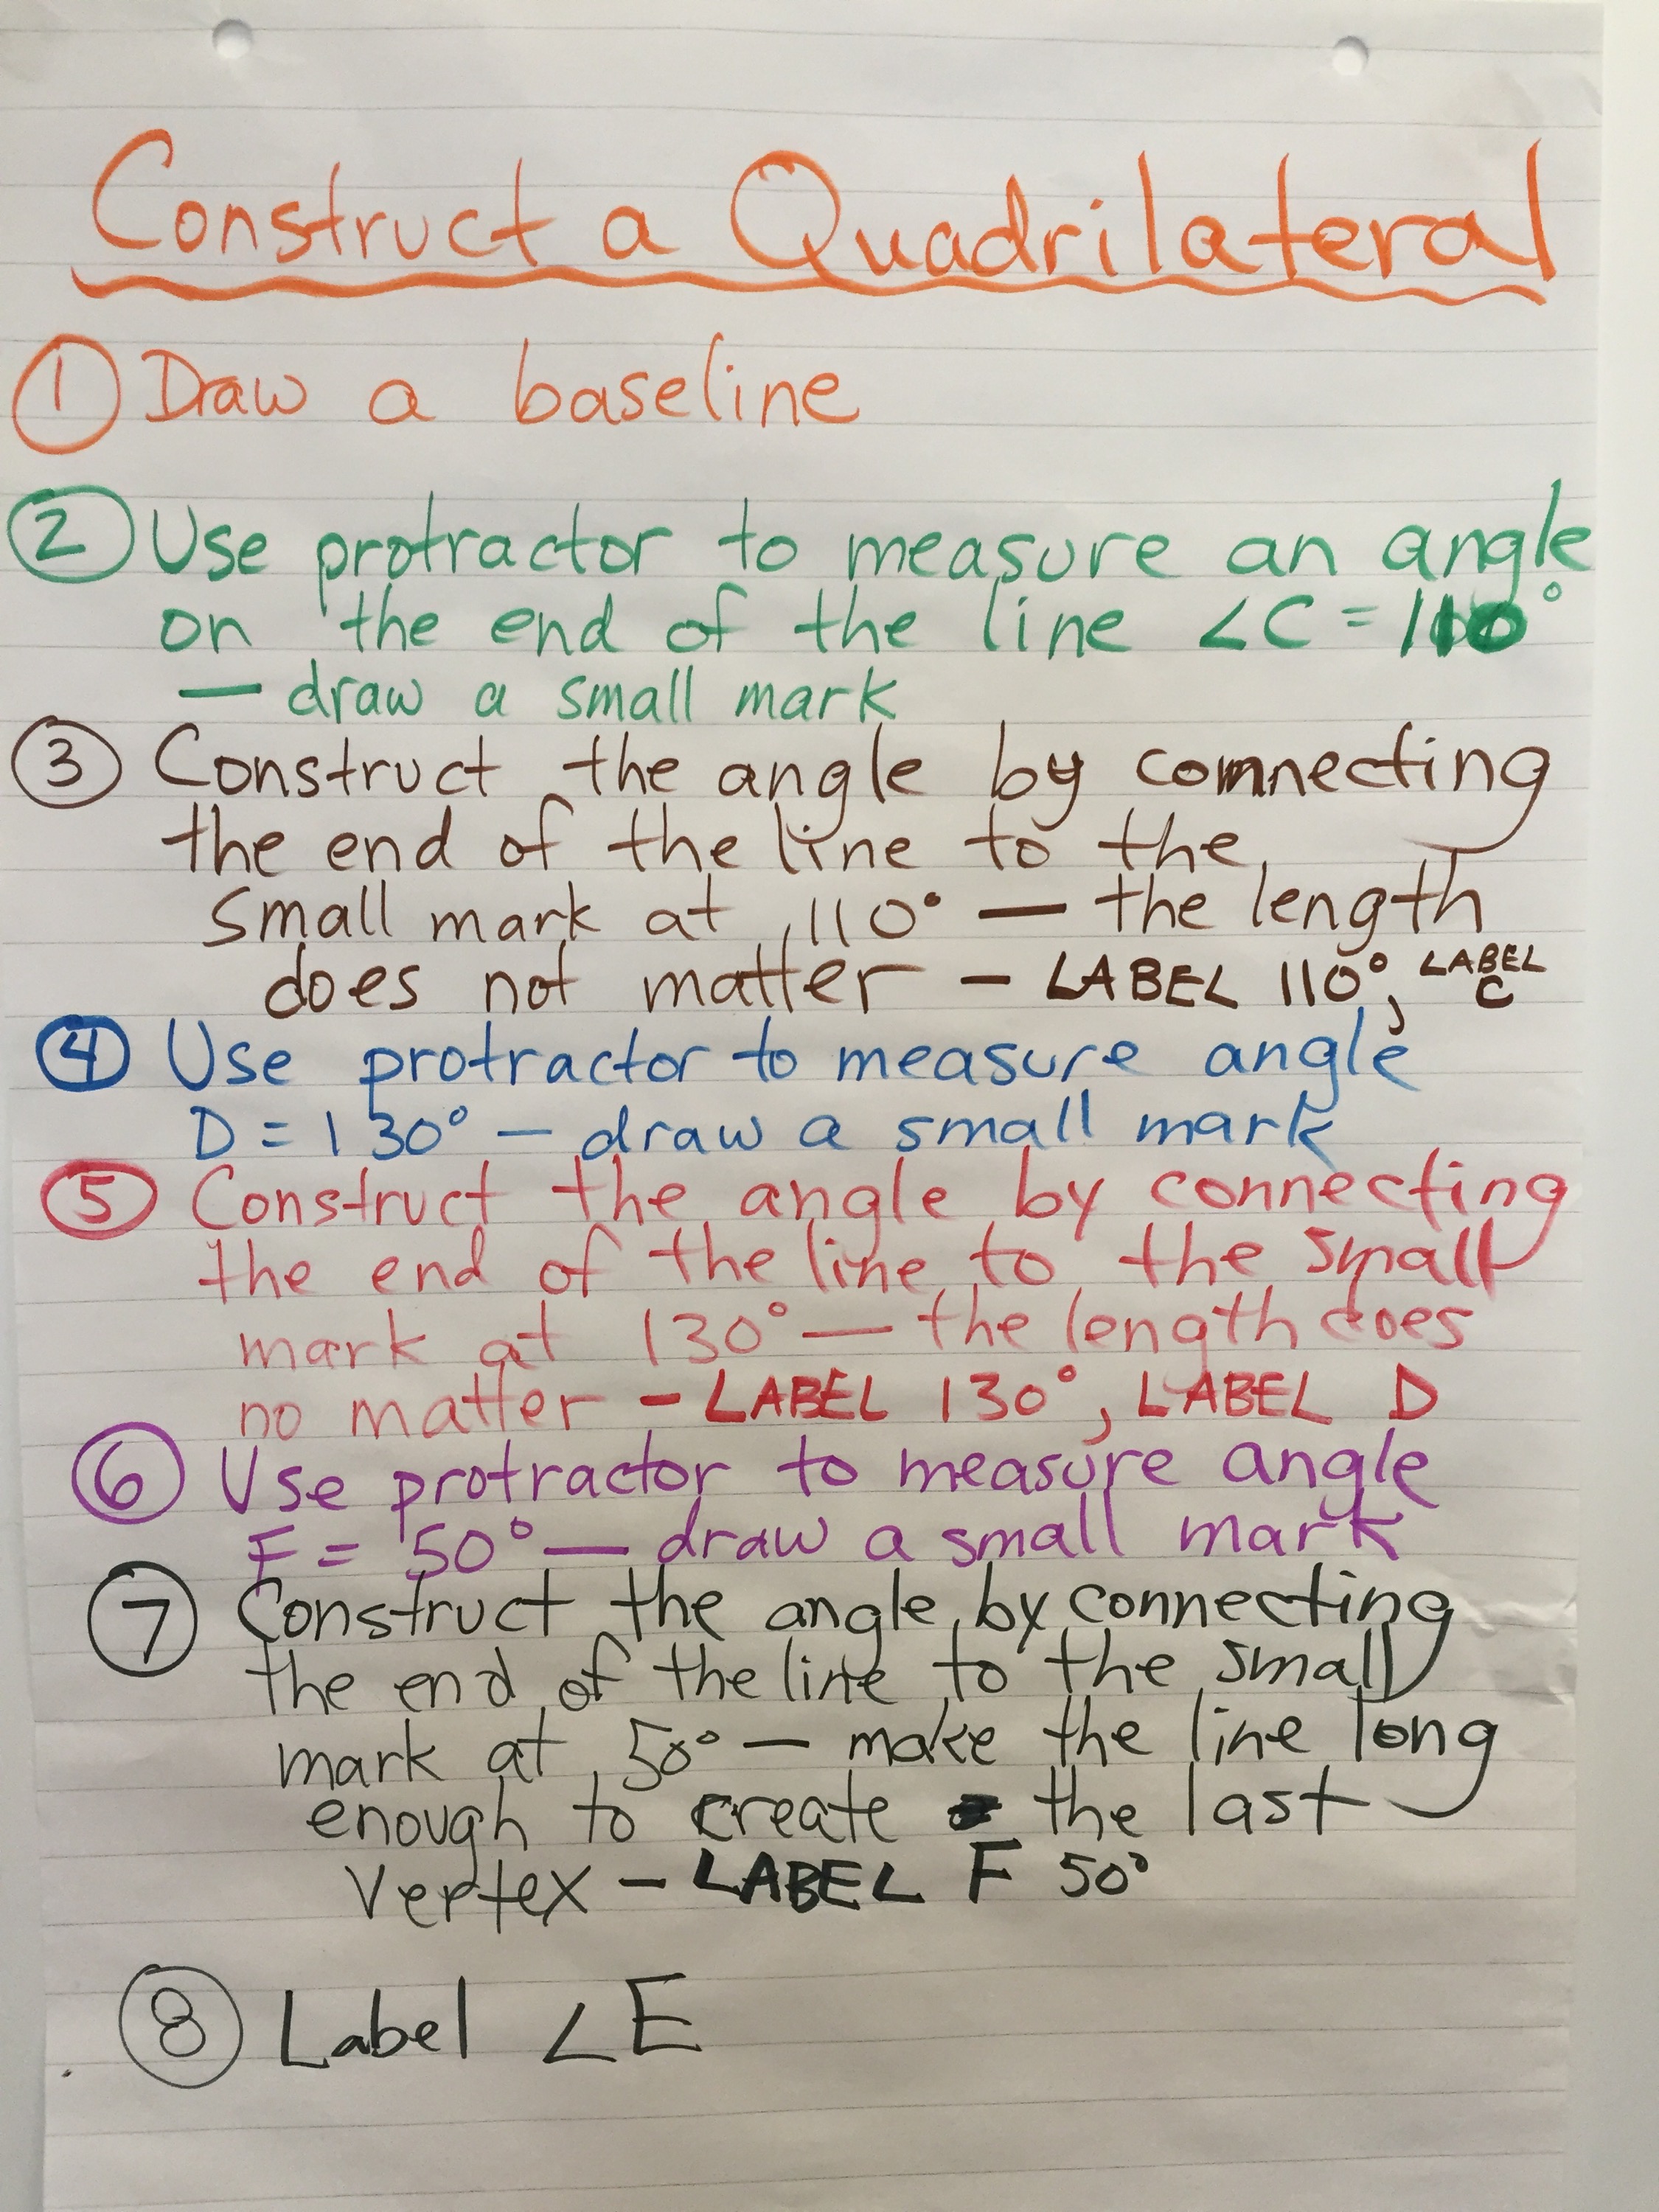 Construct a Quadrilateral
① Draw a baseline
② Use protractor to measure an angle
on the end of the line ∠C = 110°
— draw a small mark
③ Construct the angle by connecting
the end of the line to the
small mark at 110° — the length
does not matter — LABEL 110°, LABEL C
④ Use protractor to measure angle
D = 130° — draw a small mark
⑤ Construct the angle by connecting
the end of the line to the small
mark at 130° — the length does
no matter — LABEL 130°, LABEL D
⑥ Use protractor to measure angle
F = 50° — draw a small mark
⑦ Construct the angle by connecting
the end of the line to the small
mark at 50° — make the line long
enough to create the last
vertex — LABEL F 50°
⑧ Label ∠E